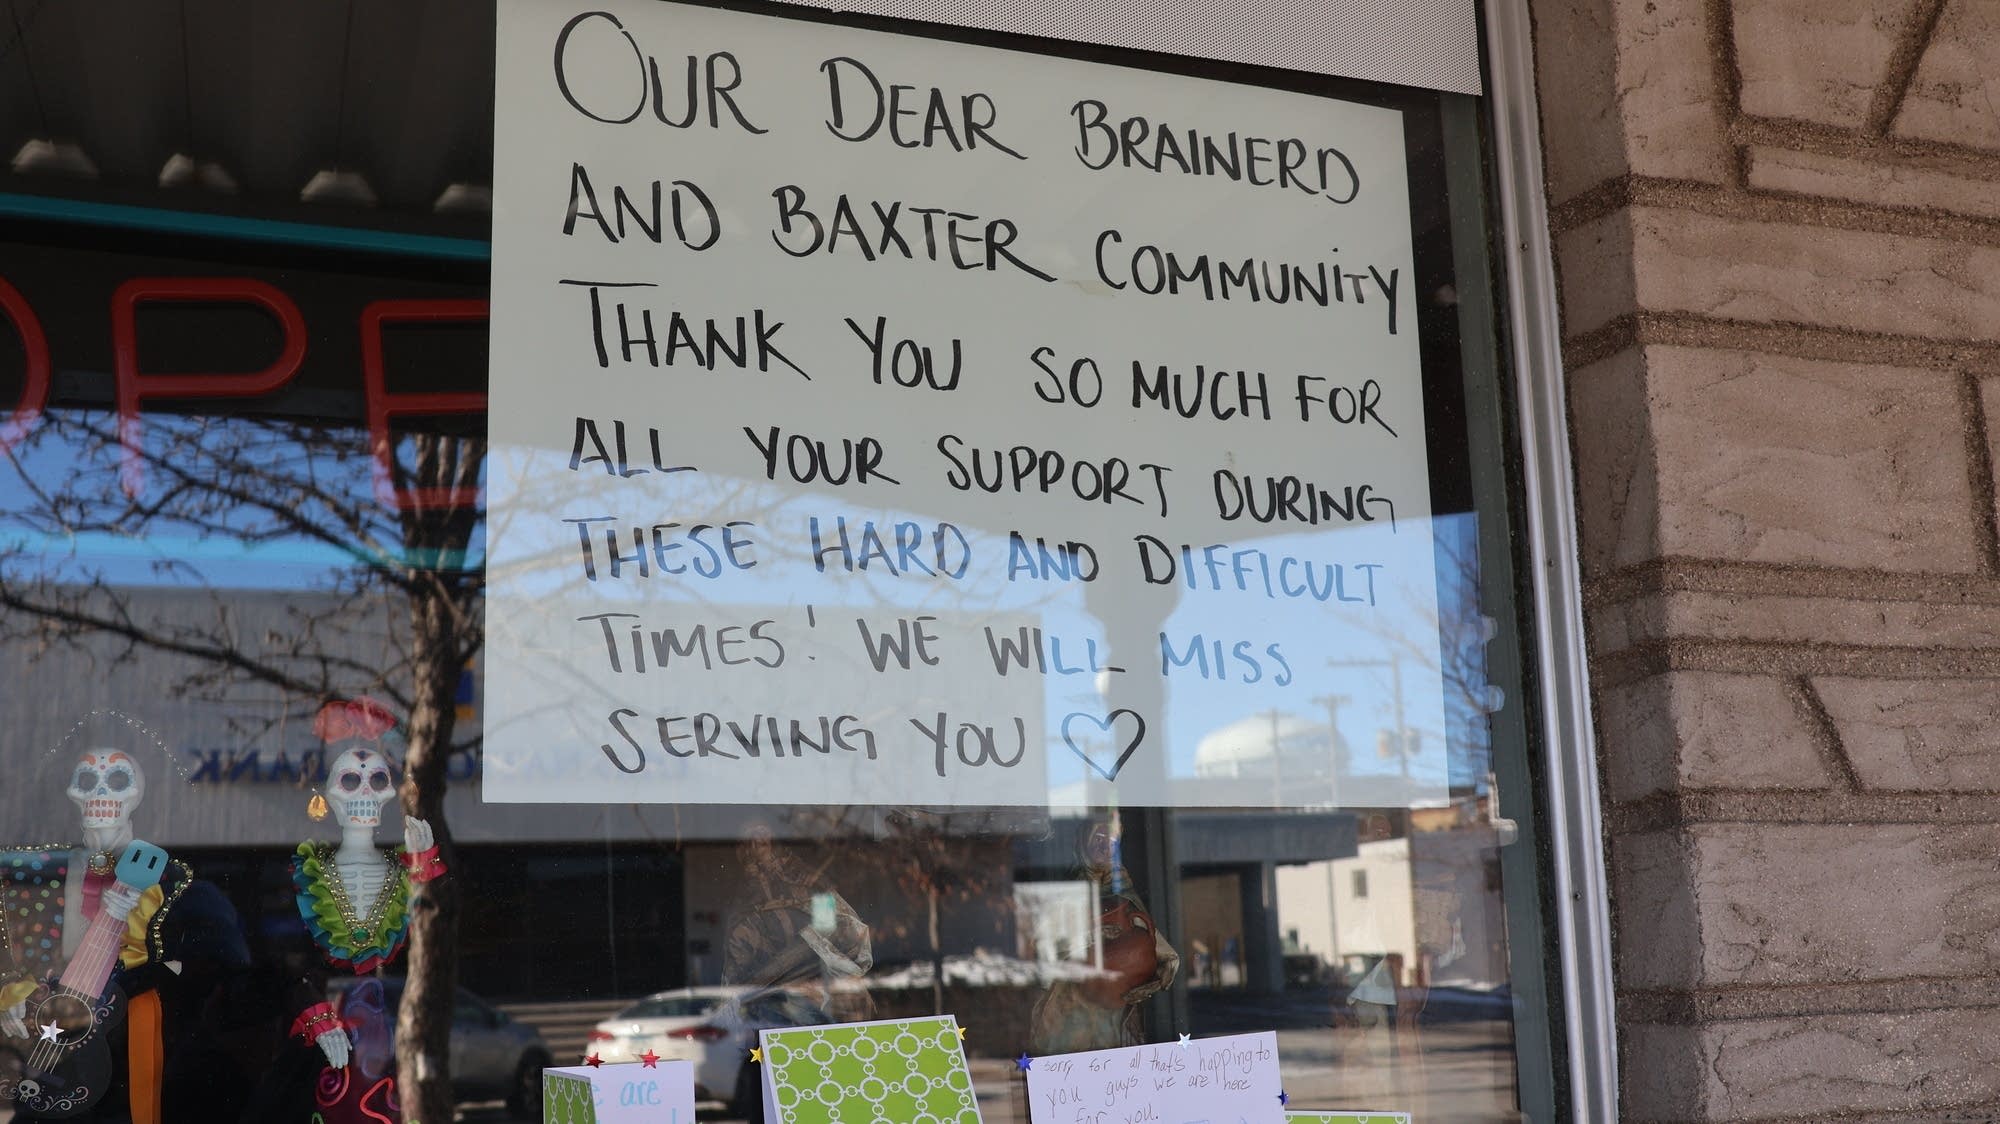 OUR DEAR BRAINERD
AND BAXTER COMMUNITY
THANK YOU SO MUCH FOR
ALL YOUR SUPPORT DURING
THESE HARD AND DIFFICULT
TIMES! WE WILL MISS
SERVING YOU ♡
OPE
BANK
sorry for all that's happing to
you guys we are here
for you.
are